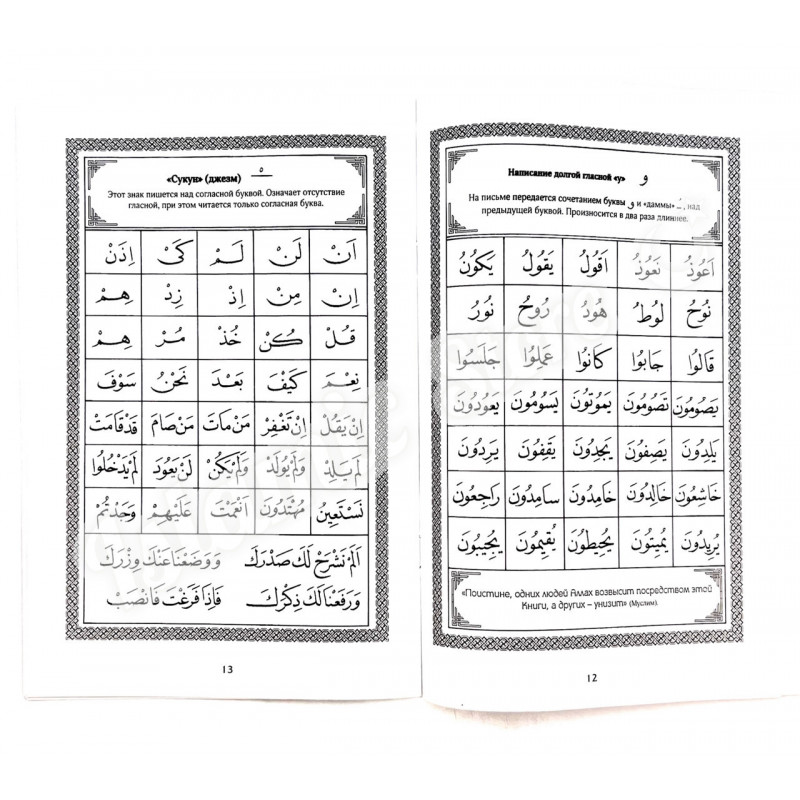 Написание долгой гласной «у» و
На письме передается сочетанием буквы و и «даммы» ـُ, над
предыдущей буквой. Произносится в два раза длиннее.
اَعُوذُ نَعُوذُ اَقُولُ يَقُولُ يَكُونُ
نُوحُ لُوطُ هُودُ رُوحُ نُورُ
قَالُوا جَابُوا كَانُوا عَمِلُوا جَلَسُوا
يَصُومُونَ تَصُومُونَ يَمُوتُونَ يَسُومُونَ يَعُودُونَ
يَلِدُونَ يَصِفُونَ يَجِدُونَ يَقِفُونَ يَرِدُونَ
خَاشِعُونَ خَالِدُونَ خَامِدُونَ سَامِدُونَ رَاجِعُونَ
يُرِيدُونَ يُمِيتُونَ يُحِيطُونَ يُقِيمُونَ يُجِيبُونَ
«Поистине, одних людей Аллах возвысит посредством этой
Книги, а других – унизит» (Муслим).
12
«Сукун» (джезм) ـْ
Этот знак пишется над согласной буквой. Означает отсутствие
гласной, при этом читается только согласная буква.
اَنْ لَنْ لَمْ كَىْ اِذَنْ
اِنْ مِنْ اِذْ زِدْ هِمْ
قُلْ كُنْ خُذْ مُرْ هِمْ
نِعْمَ كَيْفَ بَعْدَ نَحْنُ سَوْفَ
اِنْ يَقُلْ اِنْ تَغْفِرْ مَنْ مَاتَ مَنْ صَامَ قَدْ قَامَتْ
لَمْ يَلِدْ وَلَمْ يُولَدْ وَلَمْ يَكُنْ لَنْ يَعُودَ لَمْ يَدْخُلُوا
نَسْتَعِينُ مُهْتَدُونَ اَنْعَمْتَ عَلَيْهِمْ وَجَدْتُمْ
اَلَمْ نَشْرَحْ لَكَ صَدْرَكَ وَوَضَعْنَا عَنْكَ وِزْرَكَ
وَرَفَعْنَا لَكَ ذِكْرَكَ فَاِذَا فَرَغْتَ فَانْصَبْ
13